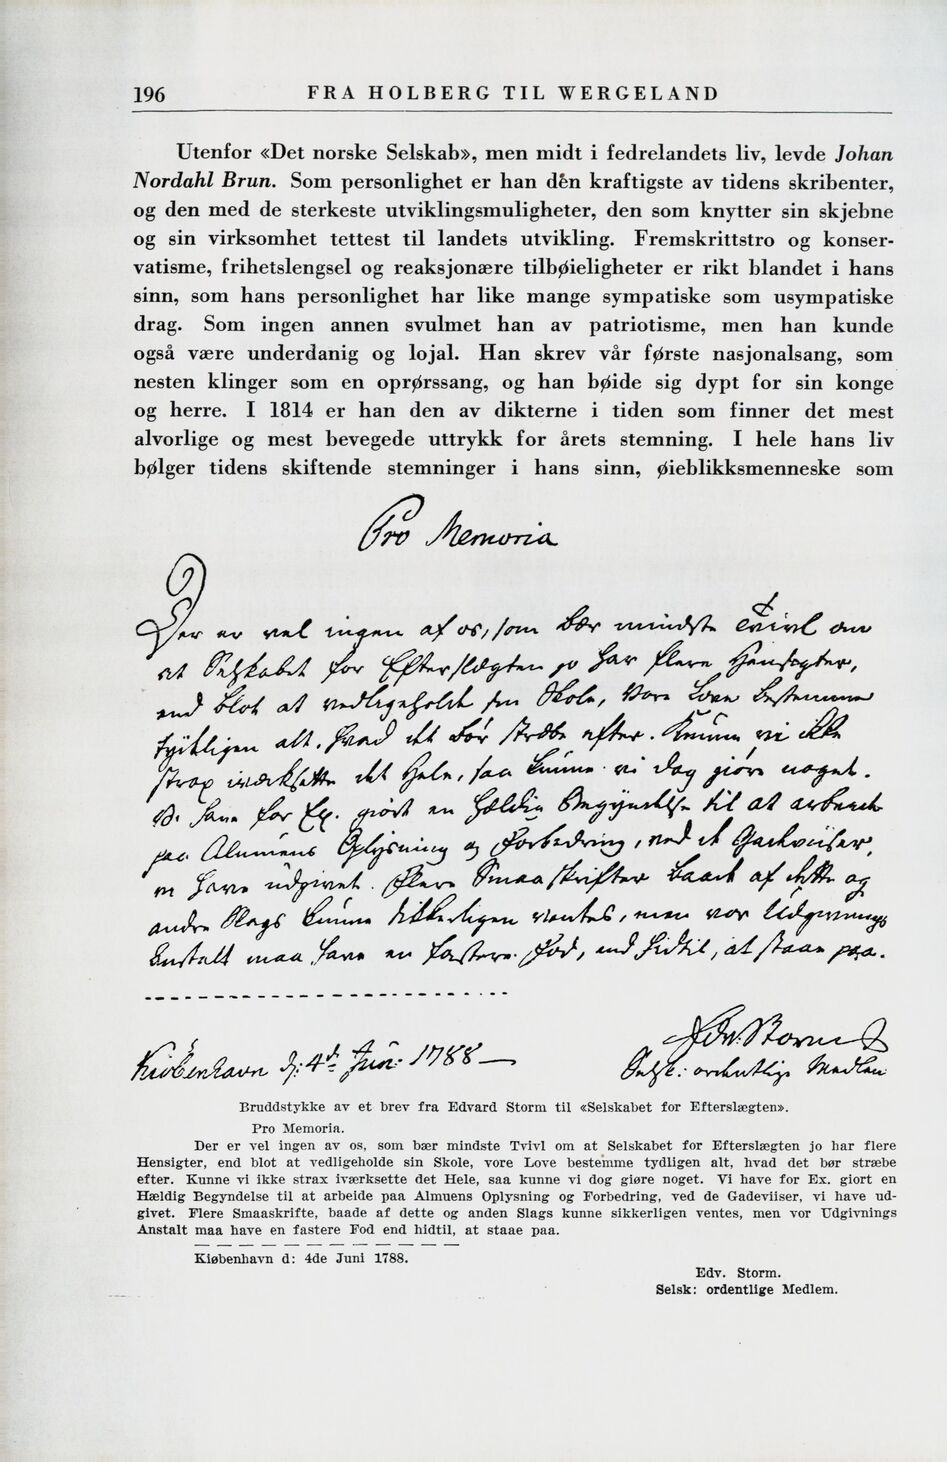 196 FRA HOLBERG TIL WERGELAND
Utenfor «Det norske Selskab», men midt i fedrelandets liv, levde Johan
Nordahl Brun. Som personlighet er han dén kraftigste av tidens skribenter,
og den med de sterkeste utviklingsmuligheter, den som knytter sin skjebne
og sin virksomhet tettest til landets utvikling. Fremskrittstro og konser-
vatisme, frihetslengsel og reaksjonære tilbøieligheter er rikt blandet i hans
sinn, som hans personlighet har like mange sympatiske som usympatiske
drag. Som ingen annen svulmet han av patriotisme, men han kunde
også være underdanig og lojal. Han skrev vår første nasjonalsang, som
nesten klinger som en oprørssang, og han bøide sig dypt for sin konge
og herre. I 1814 er han den av dikterne i tiden som finner det mest
alvorlige og mest bevegede uttrykk for årets stemning. I hele hans liv
bølger tidens skiftende stemninger i hans sinn, øieblikksmenneske som
Pro Memoria
Der er vel ingen af os, som bær mindste Tvivl om
at Selskabet for Efterslægten jo har flere Hensigter,
end blot at vedligeholde sin Skole, Vore Love bestemme
tydeligen alt, hvad det bør stræbe efter. Kunne vi ikke
strax iværksette det Hele, saa kunne vi dog giøre noget.
Vi have for Ex. giort en Hældig Begyndelse til at arbeide
paa Almuens Oplysning og Forbedring, ved de Gadeviiser,
vi have udgivet. Flere Smaaskrifter baade af dette og
andre Slags kunne sikkerligen ventes, men vor Udgivnings
Anstalt maa have en fastere Fod, end hidtil, at staae paa.
Kiøbenhavn d: 4de Juni 1788 —
Edv. Storm
Selsk: ordentlige Medlem
Bruddstykke av et brev fra Edvard Storm til «Selskabet for Efterslægten».
Pro Memoria.
Der er vel ingen av os, som bær mindste Tvivl om at Selskabet for Efterslægten jo har flere
Hensigter, end blot at vedligeholde sin Skole, vore Love bestemme tydligen alt, hvad det bør stræbe
efter. Kunne vi ikke strax iværksette det Hele, saa kunne vi dog giøre noget. Vi have for Ex. giort en
Hældig Begyndelse til at arbeide paa Almuens Oplysning og Forbedring, ved de Gadeviiser, vi have ud-
givet. Flere Smaaskrifte, baade af dette og anden Slags kunne sikkerligen ventes, men vor Udgivnings
Anstalt maa have en fastere Fod end hidtil, at staae paa.
Kiøbenhavn d: 4de Juni 1788.
Edv. Storm.
Selsk: ordentlige Medlem.